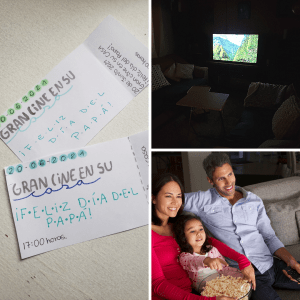 20·06·2021
GRAN CINE EN SU
casa
¡F·E·L·I·Z D·Í·A D·E·L
P·A·P·Á!
20-06-2021
GRAN CINE EN SU
casa
¡F·E·L·I·Z D·Í·A D·E·L
P·A·P·Á!
17:00 horas.